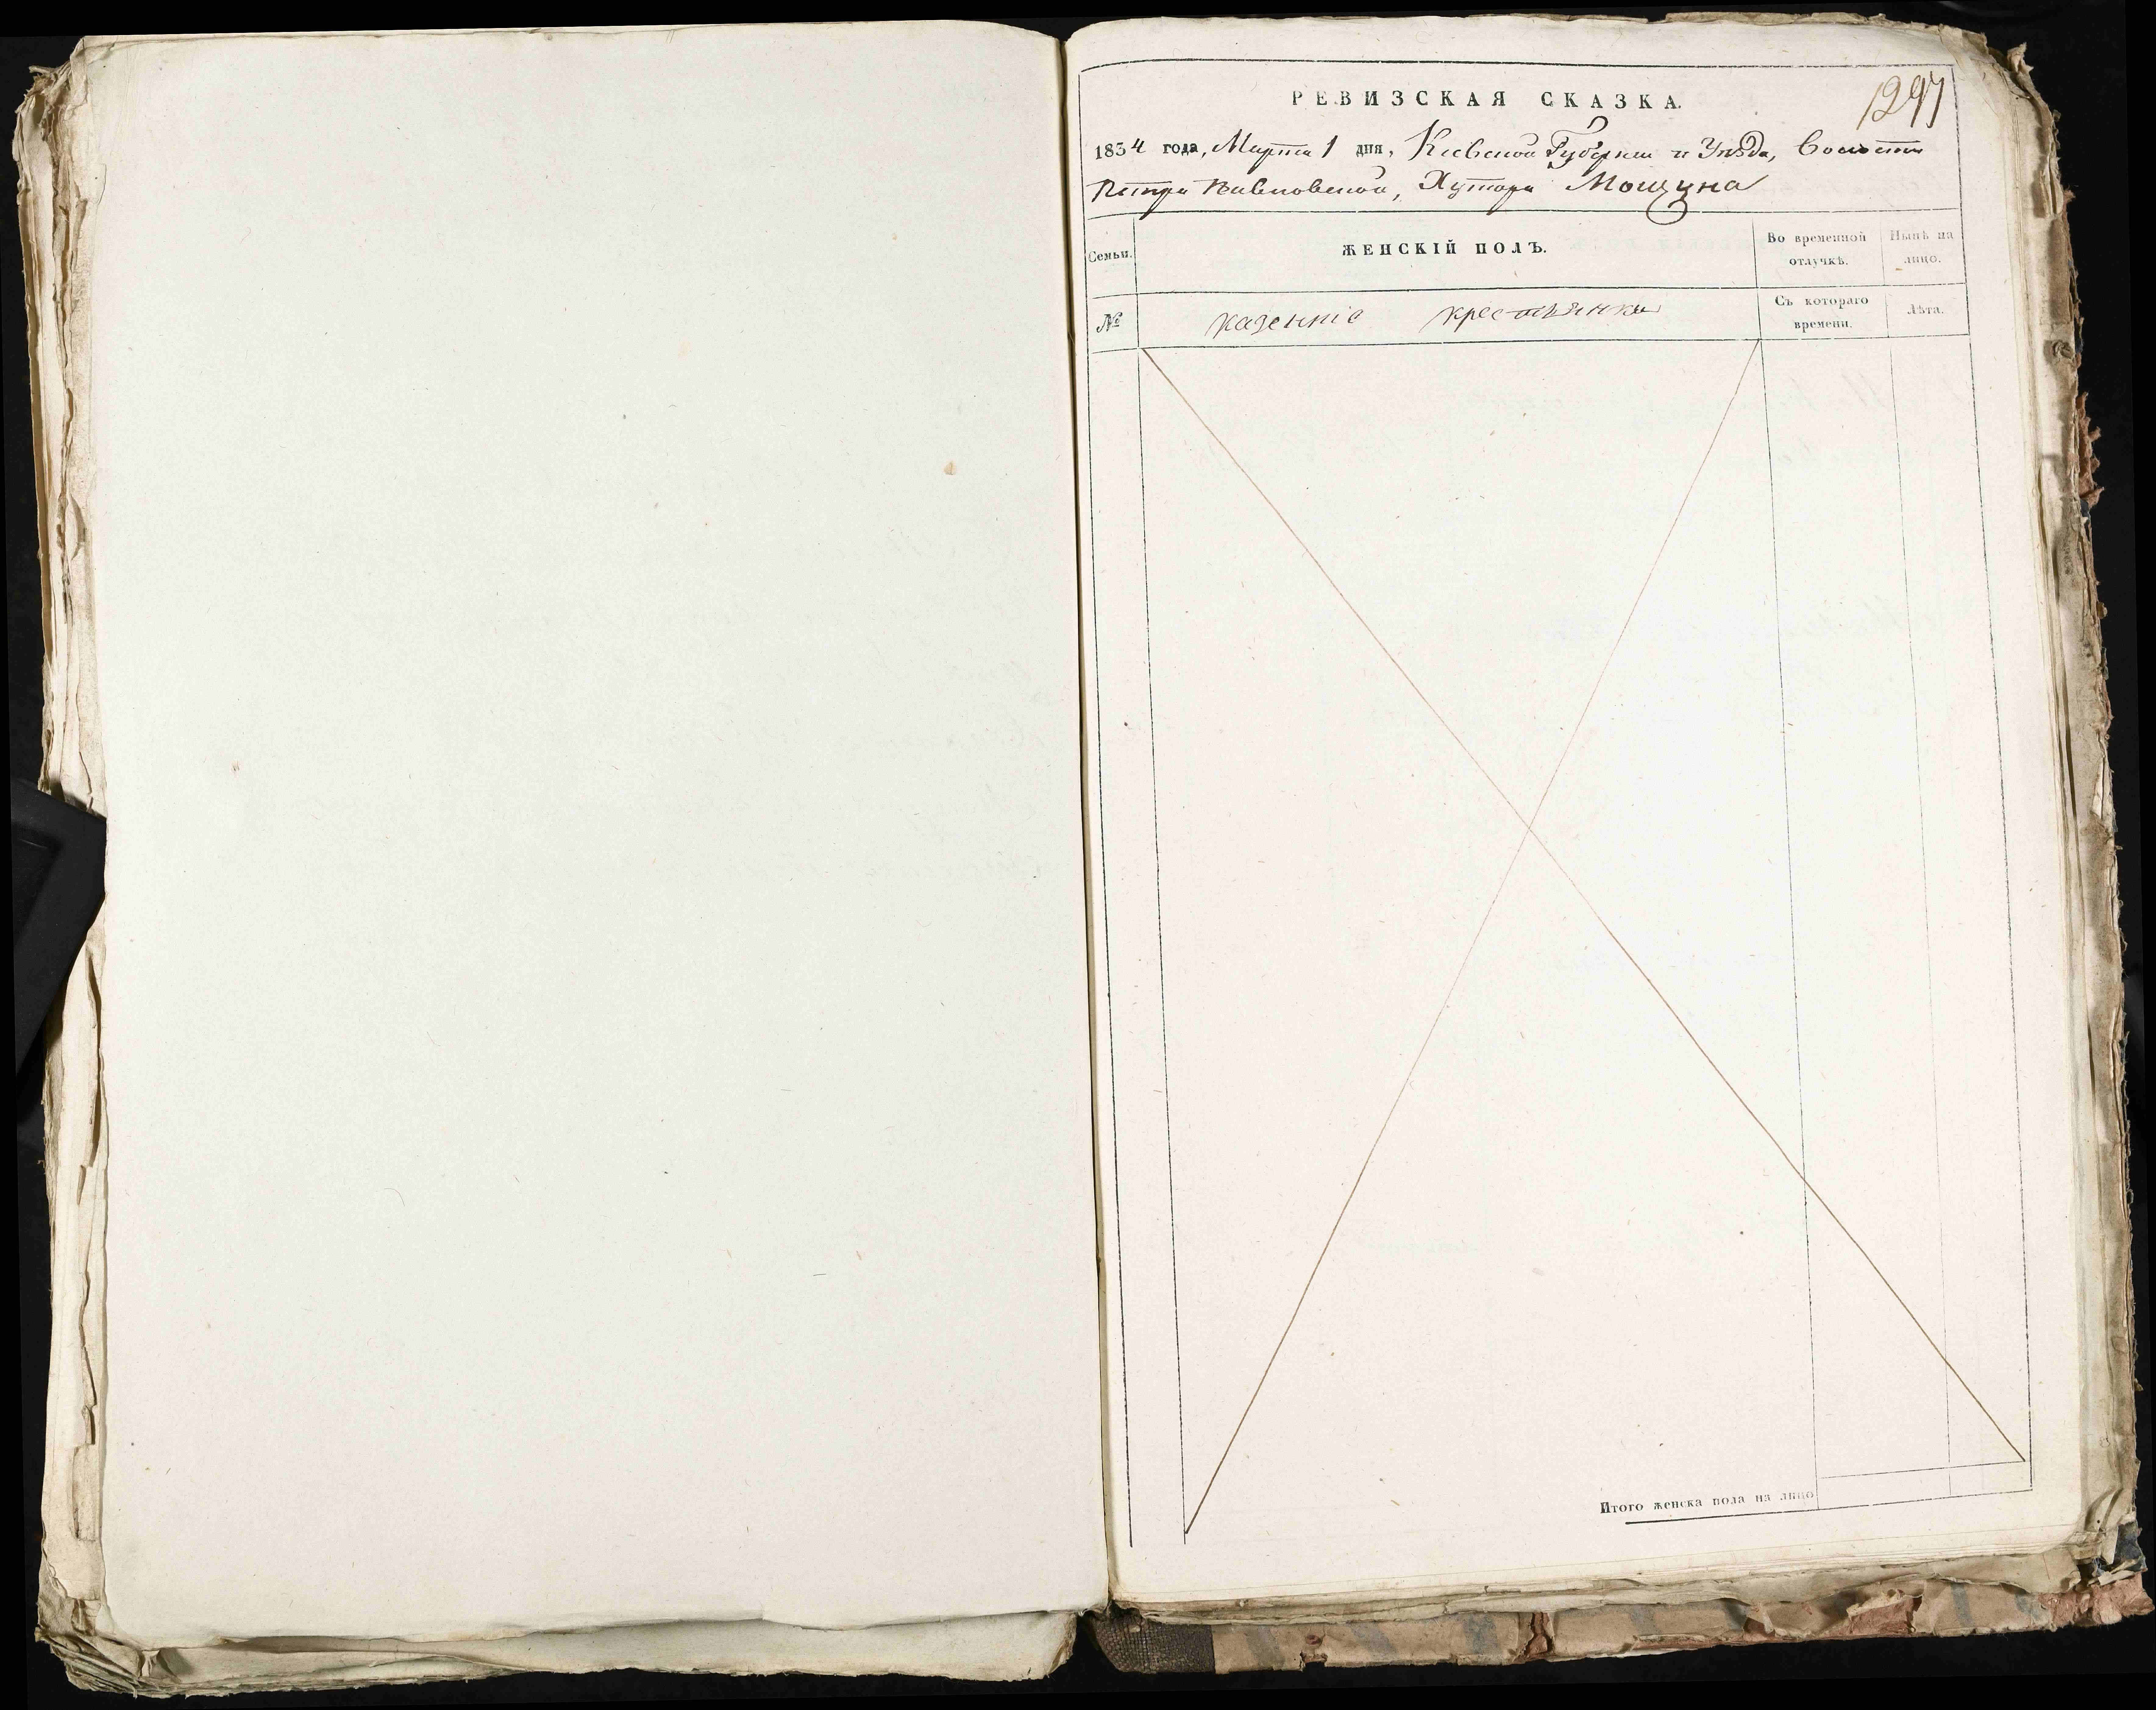 1297
РЕВИЗСКАЯ СКАЗКА.
1834 года, Марта 1 дня, Кіевской Губерніи и Уѣзда, Волости
Петро Павловской, Хутора Мощуна
Семьи.
ЖЕНСКІЙ ПОЛЪ.
Во временной отлучкѣ.
Нынѣ на лицо.
№
казенніе крестьянки
Съ котораго времени.
Лѣта.
Итого женска пола на лицо